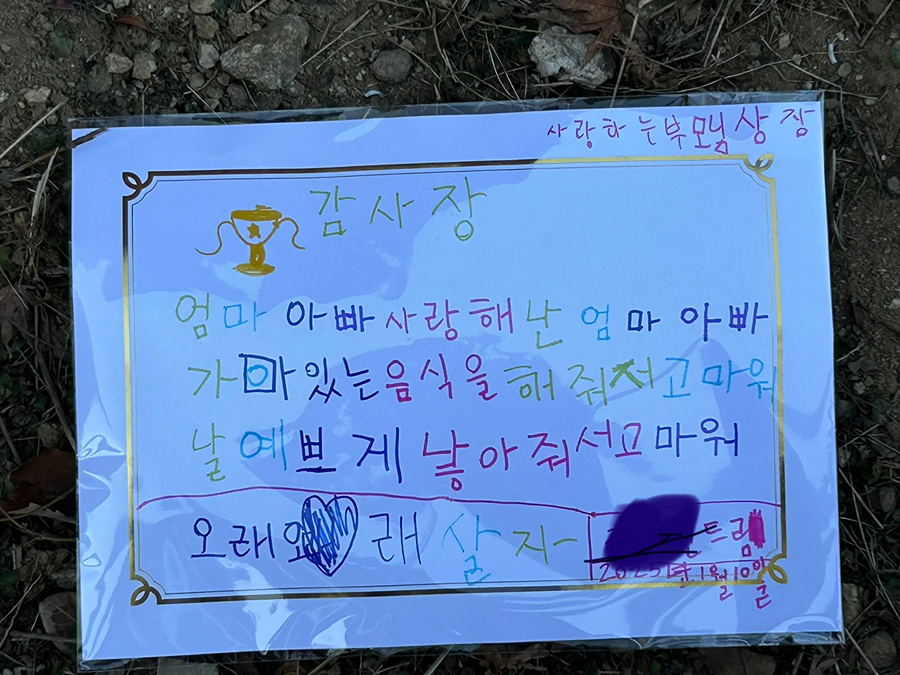 사랑하는부모님상장
감사장
엄마 아빠 사랑해 난 엄마 아빠
가 마있는음식을 해줘서 고마워
날 예쁘게 낳아줘서고마워
오래오래 살자-
트림
2025년 1월 10일